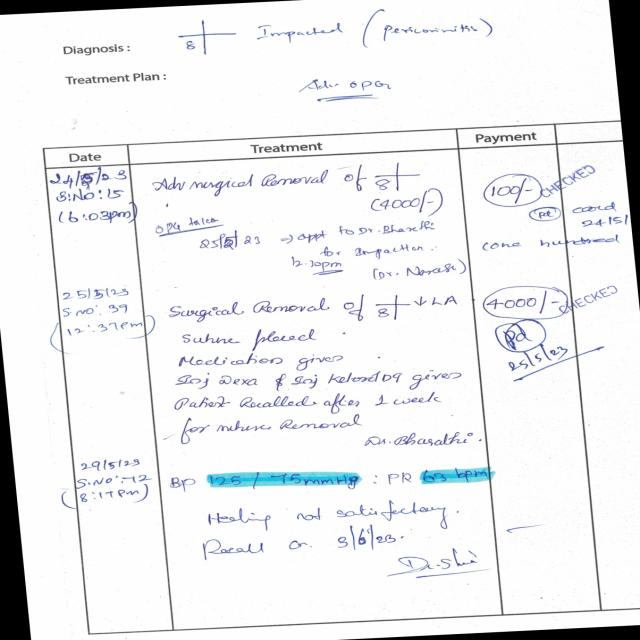 Diagnosis : 8 Impacted (Pericoronitis)
Treatment Plan :
Adv OPG
Date Treatment Payment
24/5/23
S.NO: 15
(6:03pm)
Adv surgical Removal of 8
(4000/-)
100/- CHECKED
OPG taken
pd card
24/5/
25/5/23 → appt to Dr. Bharathi
for Impaction.
12.30pm
(one hundred
(Dr. Narasi)
25/5/23
S.NO: 39
(12:37pm)
Surgical Removal of 8 ↓ LA
4000/- CHECKED
Suture placed.
pd
25/5/23
Medication given
Inj Dexa & Inj Ketorol given
Patient Recalled after 1 week
for suture Removal
Dr. Bharathi.
29/5/23
S.NO: 12
(8:17pm)
BP 125 / 75mmHg : PR 63 bpm
Healing not satisfactory.
Recall on 3/6/23.